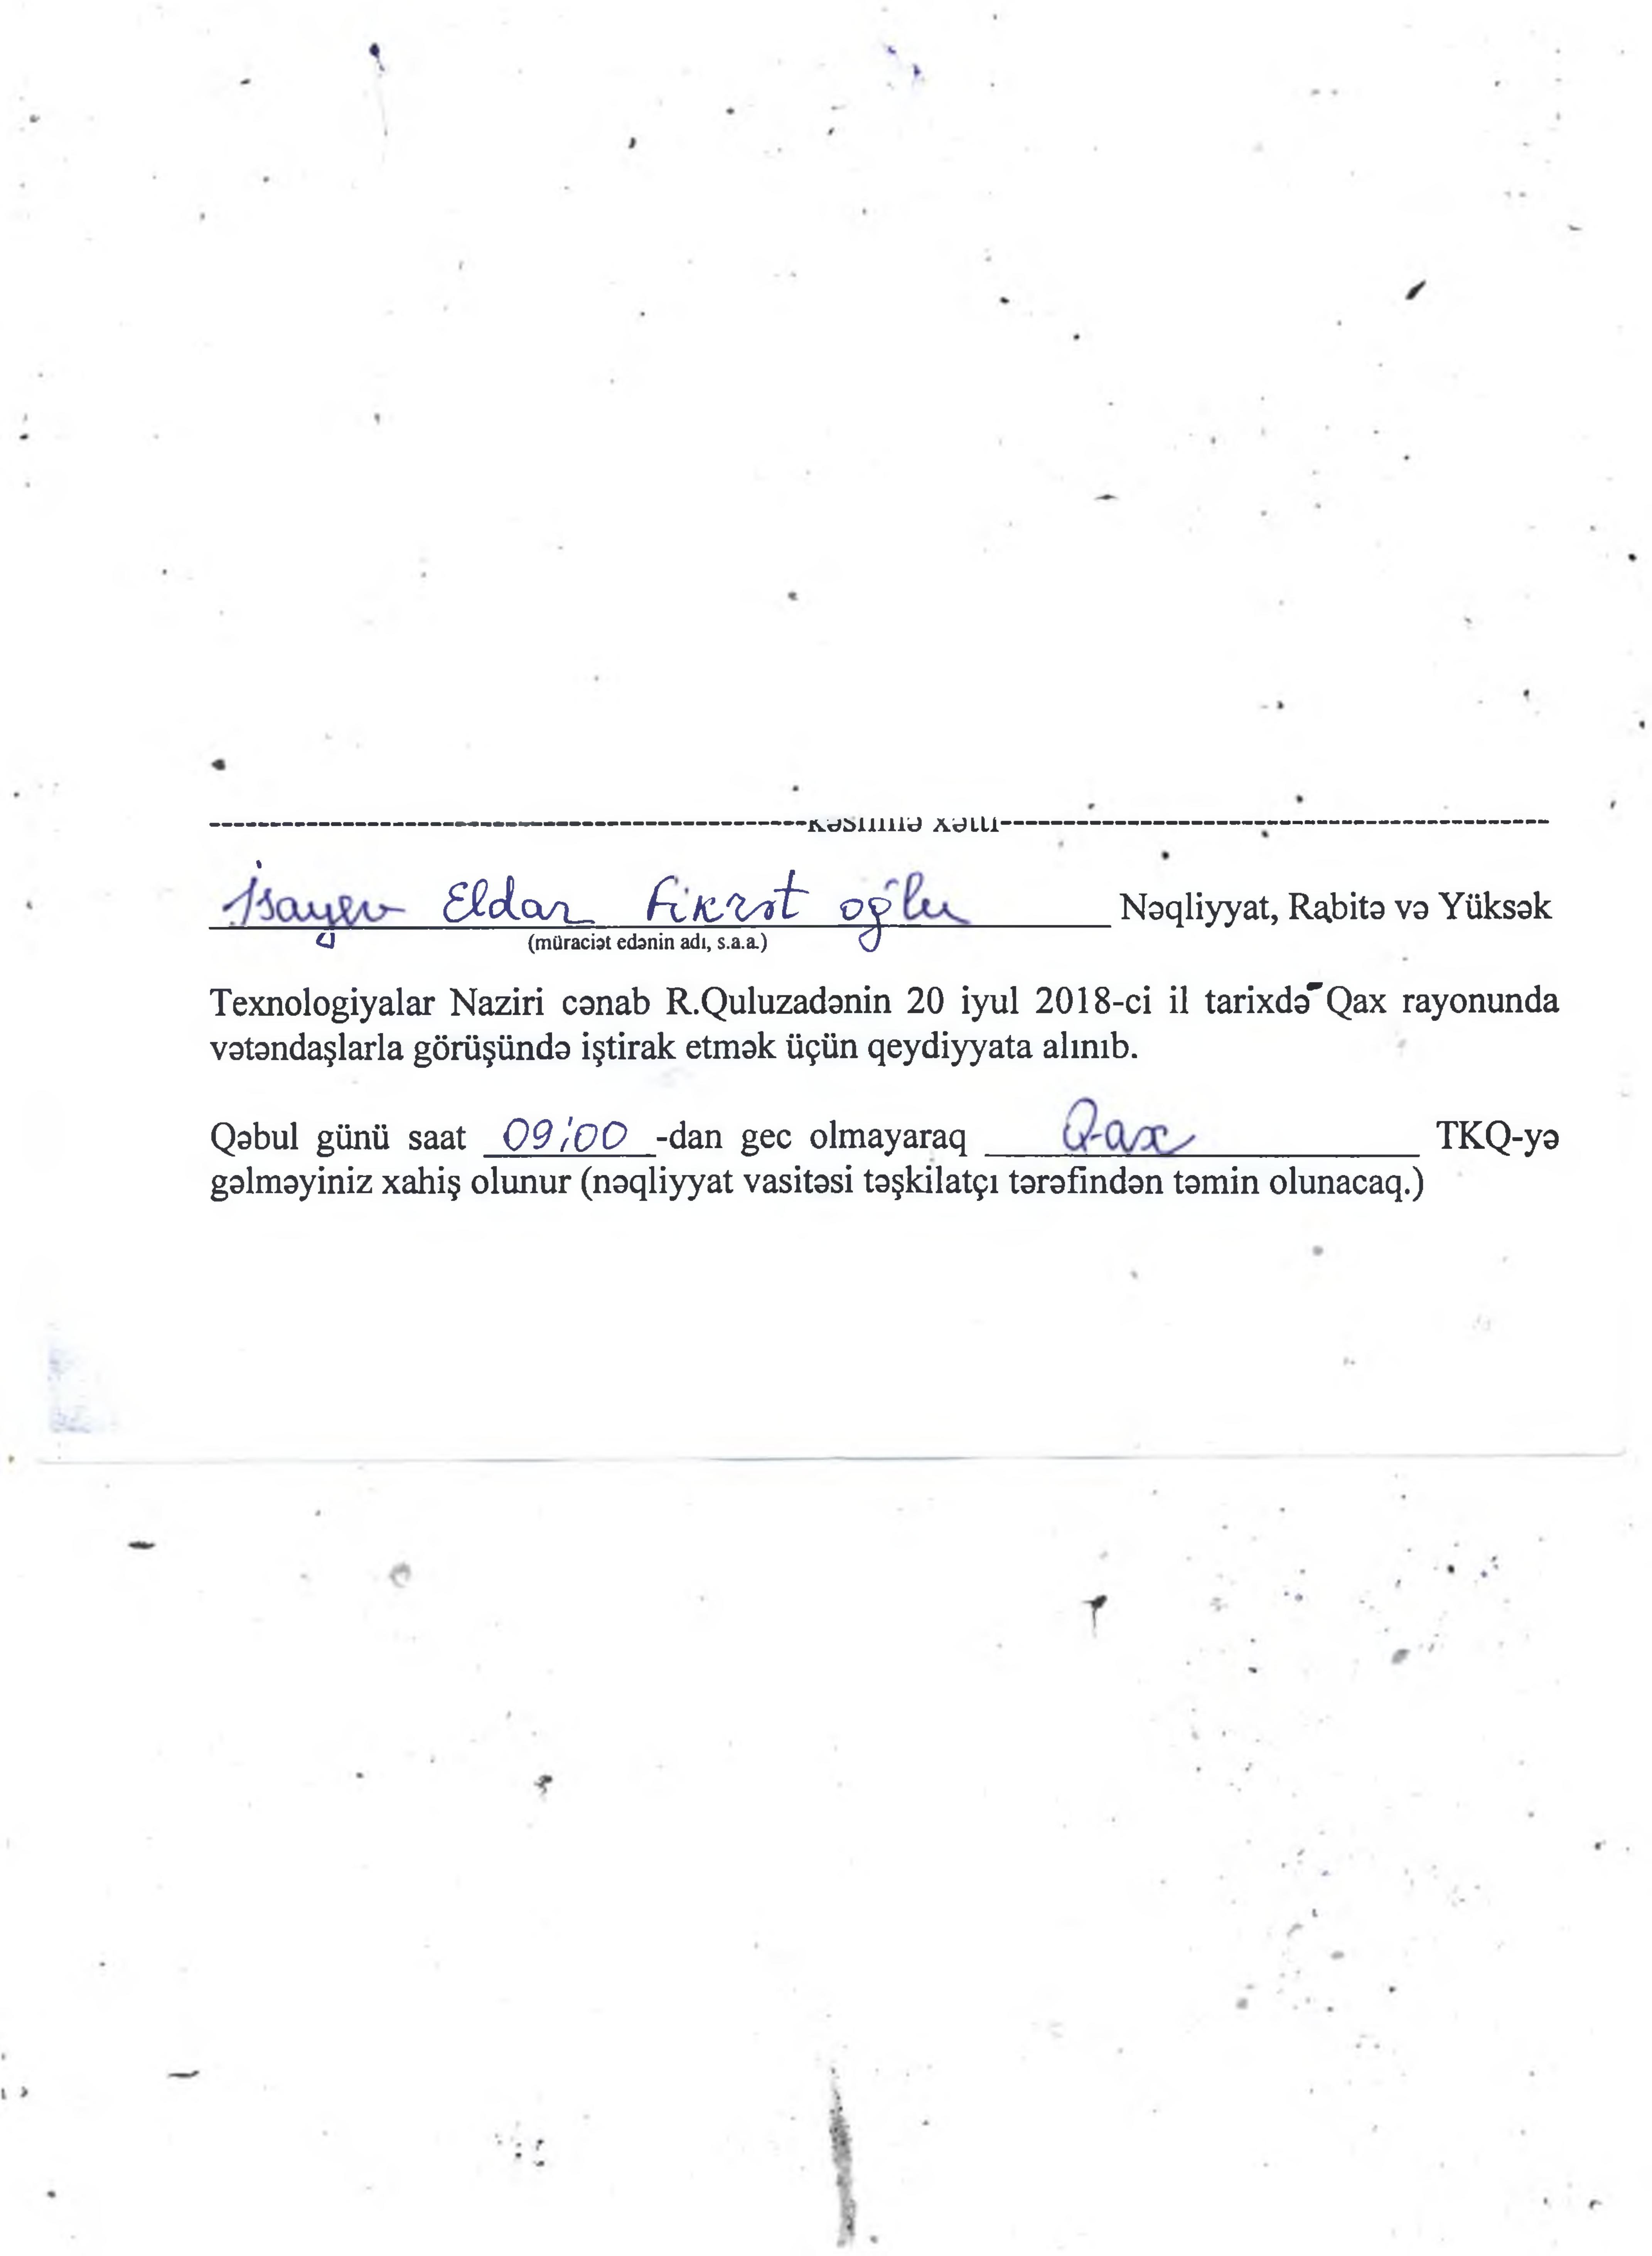 --------------------------------------------------kəsilmə xətti----------------------------------------------
İsayev Eldar Fikrət oğlu Nəqliyyat, Rabitə və Yüksək
(müraciət edənin adı, s.a.a.)
Texnologiyalar Naziri cənab R.Quluzadənin 20 iyul 2018-ci il tarixdə Qax rayonunda
vətəndaşlarla görüşündə iştirak etmək üçün qeydiyyata alınıb.
Qəbul günü saat 09:00 -dan gec olmayaraq Qax TKQ-yə
gəlməyiniz xahiş olunur (nəqliyyat vasitəsi təşkilatçı tərəfindən təmin olunacaq.)